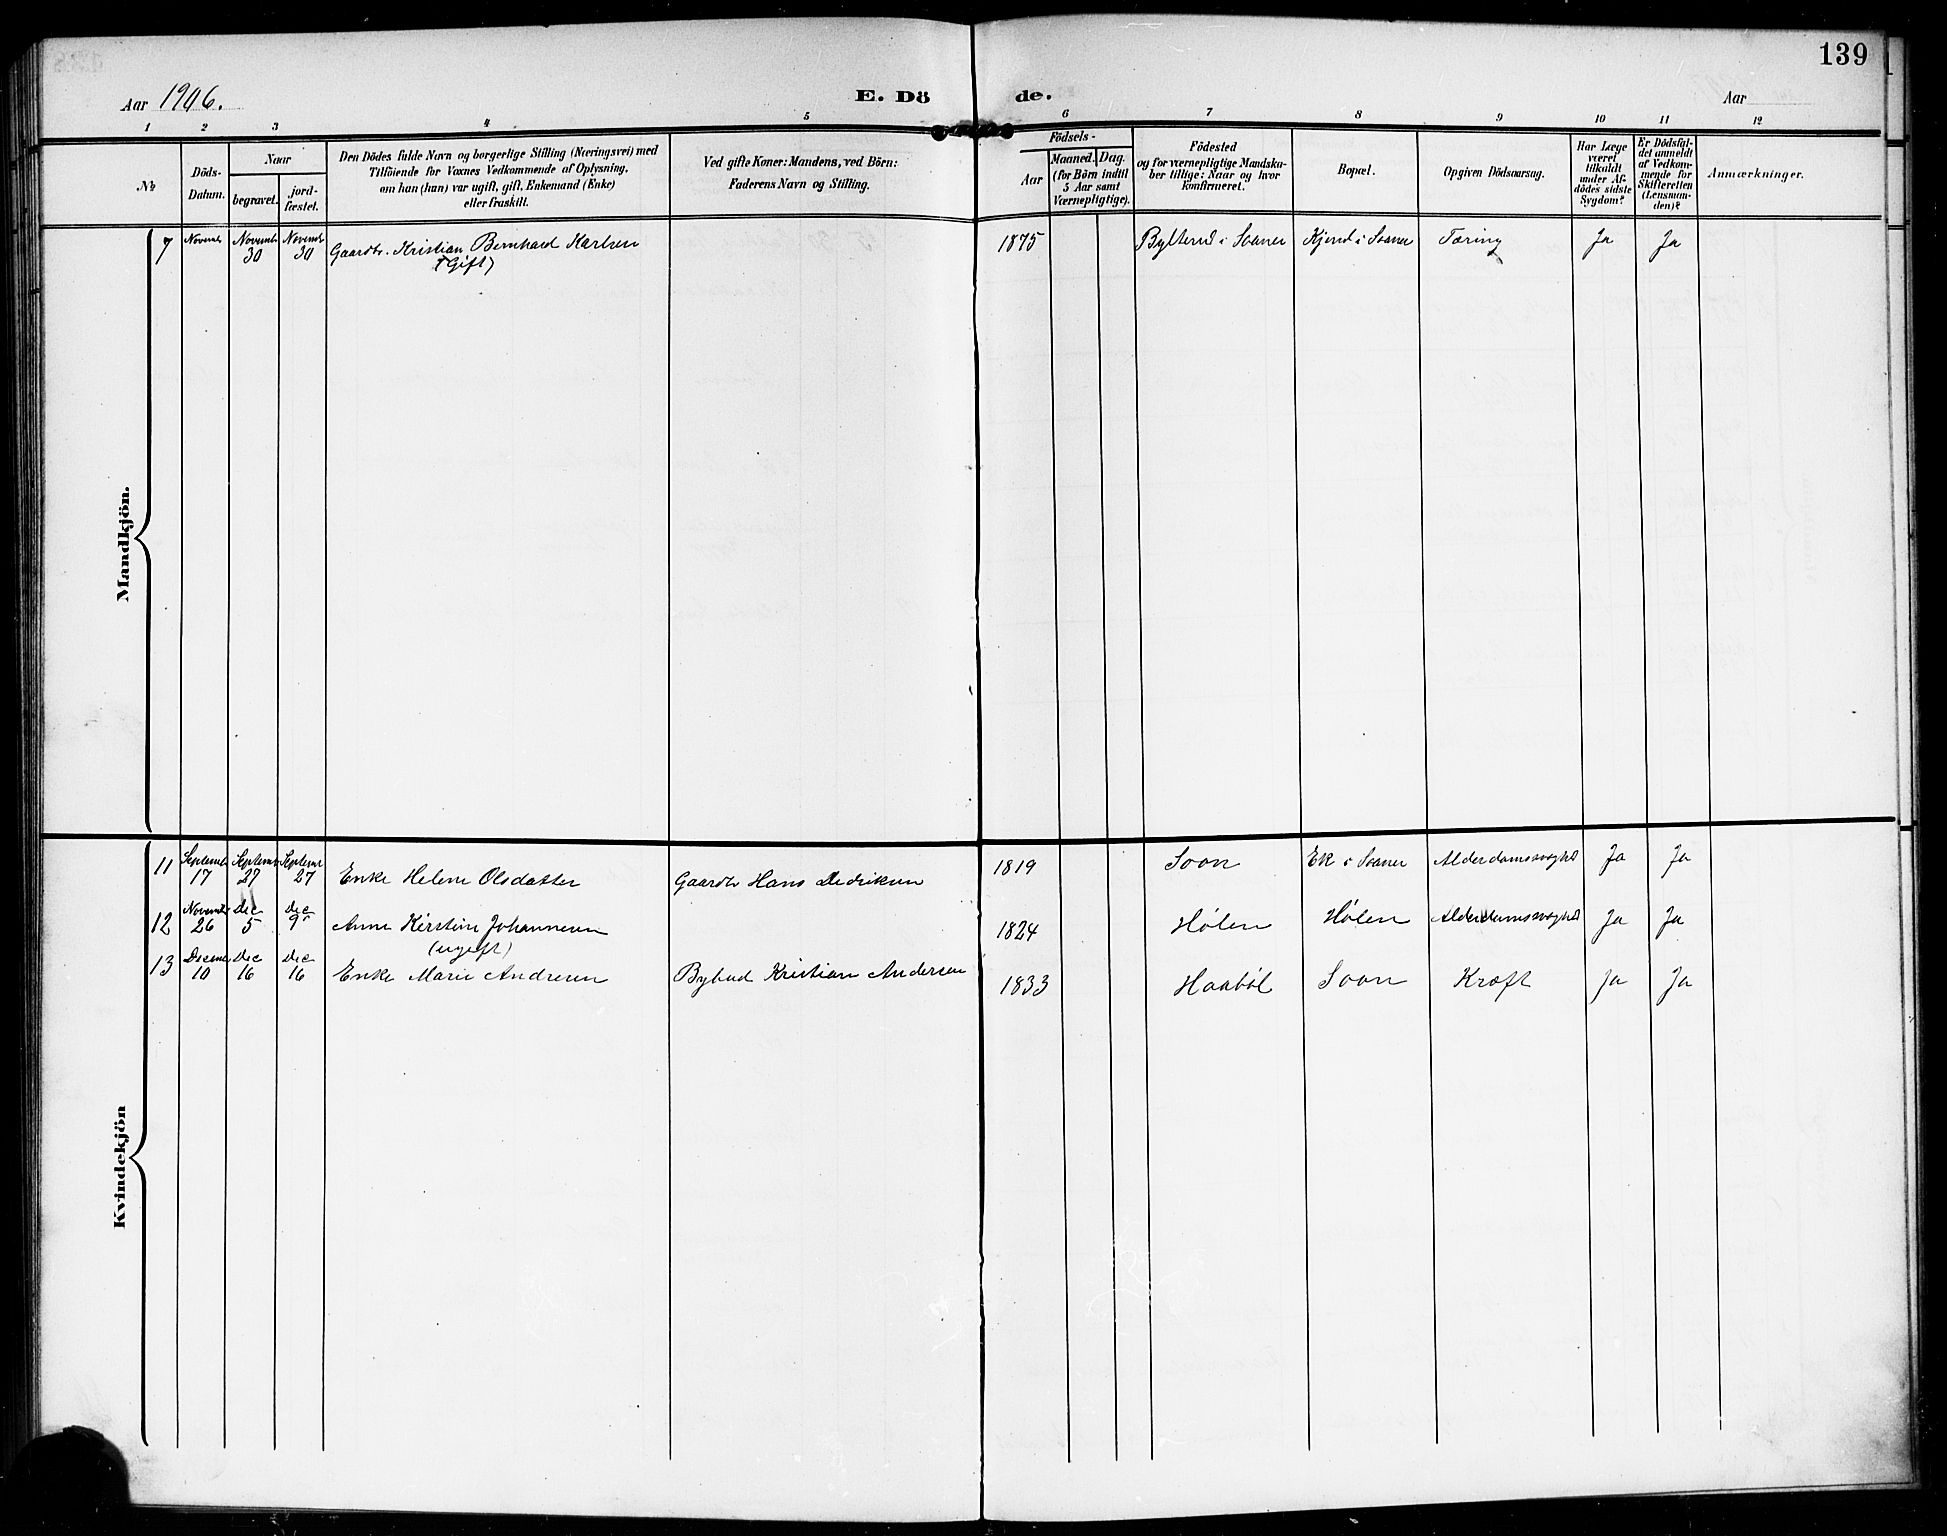 139
Aar 1906.
E. Dö de.
Aar
1 2 3 4 5 6 7 8 9 10 11 12
№
Döds-
Datum.
Naar
begravet.
jord-
fæstet.
Den Dödes fulde Navn og borgerlige Stilling (Næringsvei) med
Tilföiende for Voxnes Vedkommende af Oplysning,
om han (hun) var ugift, gift, Enkemand (Enke)
eller fraskilt.
Ved gifte Koner: Mandens, ved Börn:
Faderens Navn og Stilling.
Födsels-
Aar
Maaned. Dag.
(for Börn indtil
5 Aar samt
Værnepligtige).
Födested
og for værnepligtige Mandska-
ber tillige: Naar og hvor
konfirmeret.
Bopæl.
Opgiven Dödsaarsag.
Har Læge
været
tilkaldt
under Af-
dödes sidste
Sygdom?
Er Dödsfal-
det anmeldt
af Vedkom-
mende for
Skifteretten
(Lensman-
den)?
Anmærkninger.
Mandkjön.
7 Novemb Novemb 30 Novemb 30 Gaardbr. Kristian Bernhard Karlsen 1875 Bylterud i Soaner Kjerud i Soaner Tæring Ja Ja
(Gift)
Kvindekjön
11 Septemb 17 Septemb 27 Septemb 27 Enke Helene Olsdatter Gaardbr Hans Dedriksen 1819 Soon Ek i Soaner Alderdomssvaghd Ja Ja
12 Novemb 26 Dec 5 Dec 9 Anne Kirstine Johannesen 1824 Hølen Hølen Alderdomssvaghd Ja Ja
(ugift)
13 Decemb 10 Dec 16 Dec 16 Enke Marie Andresen Bybud Kristian Andersen 1833 Haabøl Soon Kræft Ja Ja